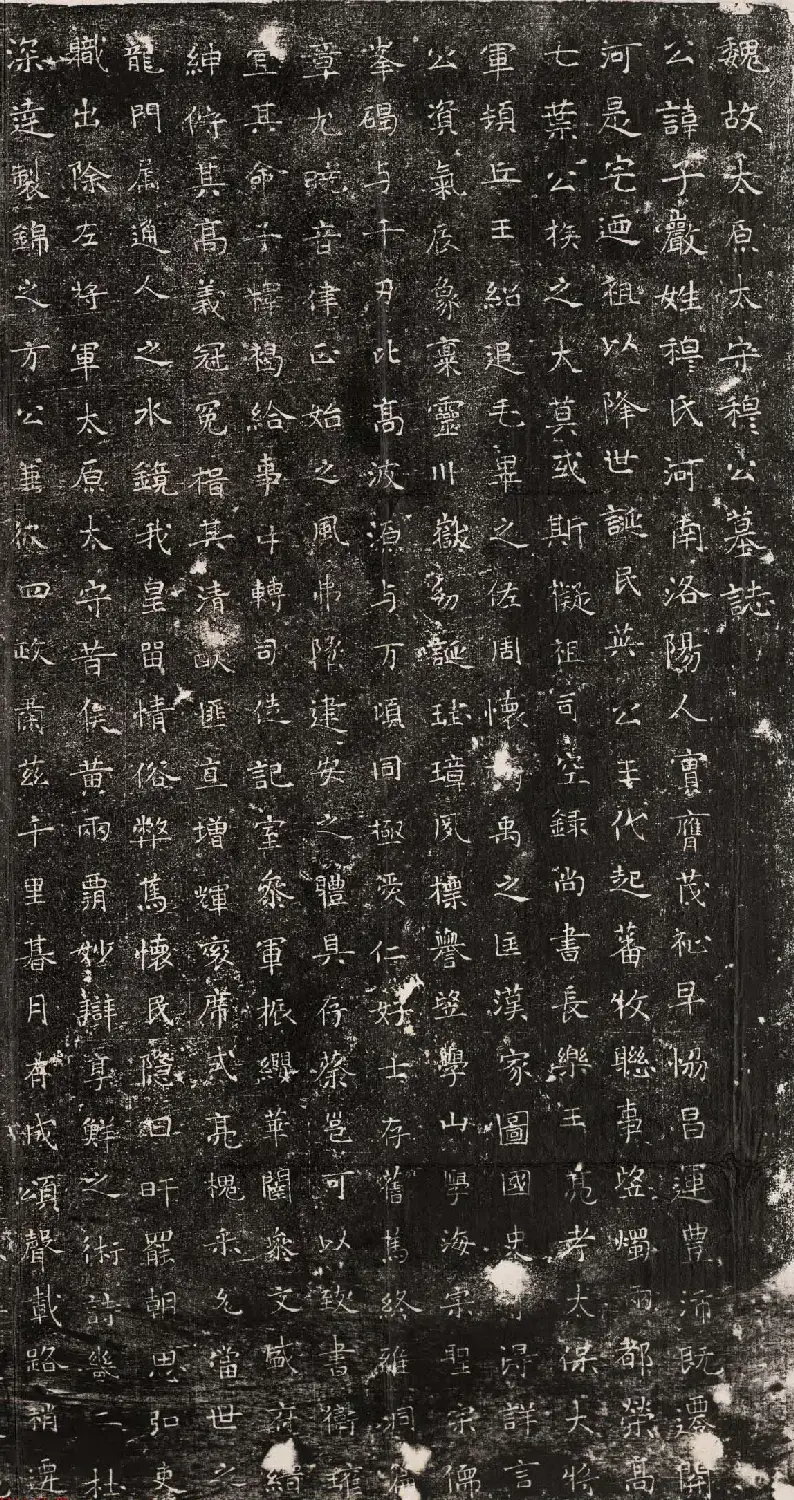 魏故太原太守穆公墓誌
公諱子巖姓穆氏河南洛陽人實膺茂祉早恊昌運豊沛既遷開
河是宅迺祖以降世誕民英公王代起蕃牧聯事盛燭兩都榮高
七葉公侯之大莫或斯擬祖司空錄尚書長樂王亮考太保大將
軍頓丘王紹追毛畢之佐周懷禹之匡漢家圖國史可得詳言
公資氣辰象稟靈川嶽幼誕珪璋夙標譽望學山學海宗聖宗儒
峯碣与千刃比高波源与万頃同極愛仁好士存舊篤終雍洞
章尤曉音律正始之風弗隆建安之體具存蔡邕可以致書衛瓘
宜其命子釋褐給事中轉司徒記室參軍振纓華閣參文盛府縉
紳脩其高義冠冕揩其清猷匪直增輝袞席式亮槐采允當世之
龍門属通人之水鏡我皇留情俗弊篤懷民隐日旰罷朝思弘吏
職出除左將軍太原太守昔侯黄兩霸妙辯享鮮之術詩幾二杜
深達製錦之方公兼彼四政肅茲千里朞月有成頌聲載路稍遷